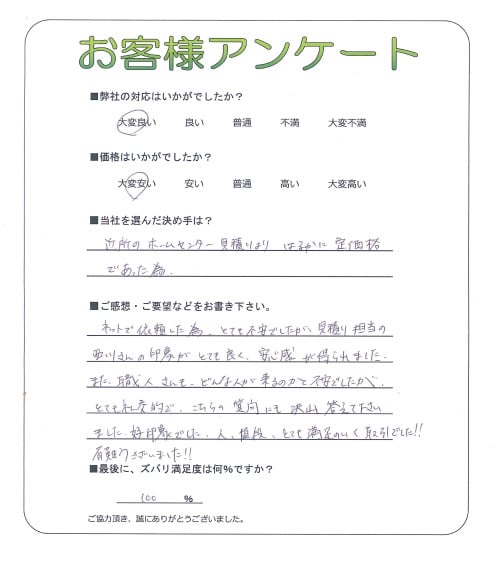 お客様アンケート
■弊社の対応はいかがでしたか？
大変良い 良い 普通 不満 大変不満
■価格はいかがでしたか？
大変安い 安い 普通 高い 大変高い
■当社を選んだ決め手は？
近所のホームセンター見積りより はるかに 定価格
であった為.
■ご感想・ご要望などをお書き下さい。
ネットで依頼した為、とても不安でしたが、見積り担当の
西川さんの印象が とても良く、安心感が得られました.
また、職人さんも、どんな人が来るのかと不安でしたが、
とても社交的で、こちらの質問にも 沢山 答えて下さい
ました. 好印象でした. 人、値段、とても満足のいく取引でした!!
有難うございました!!
■最後に、ズバリ満足度は何%ですか？
100 %
ご協力頂き、誠にありがとうございました。